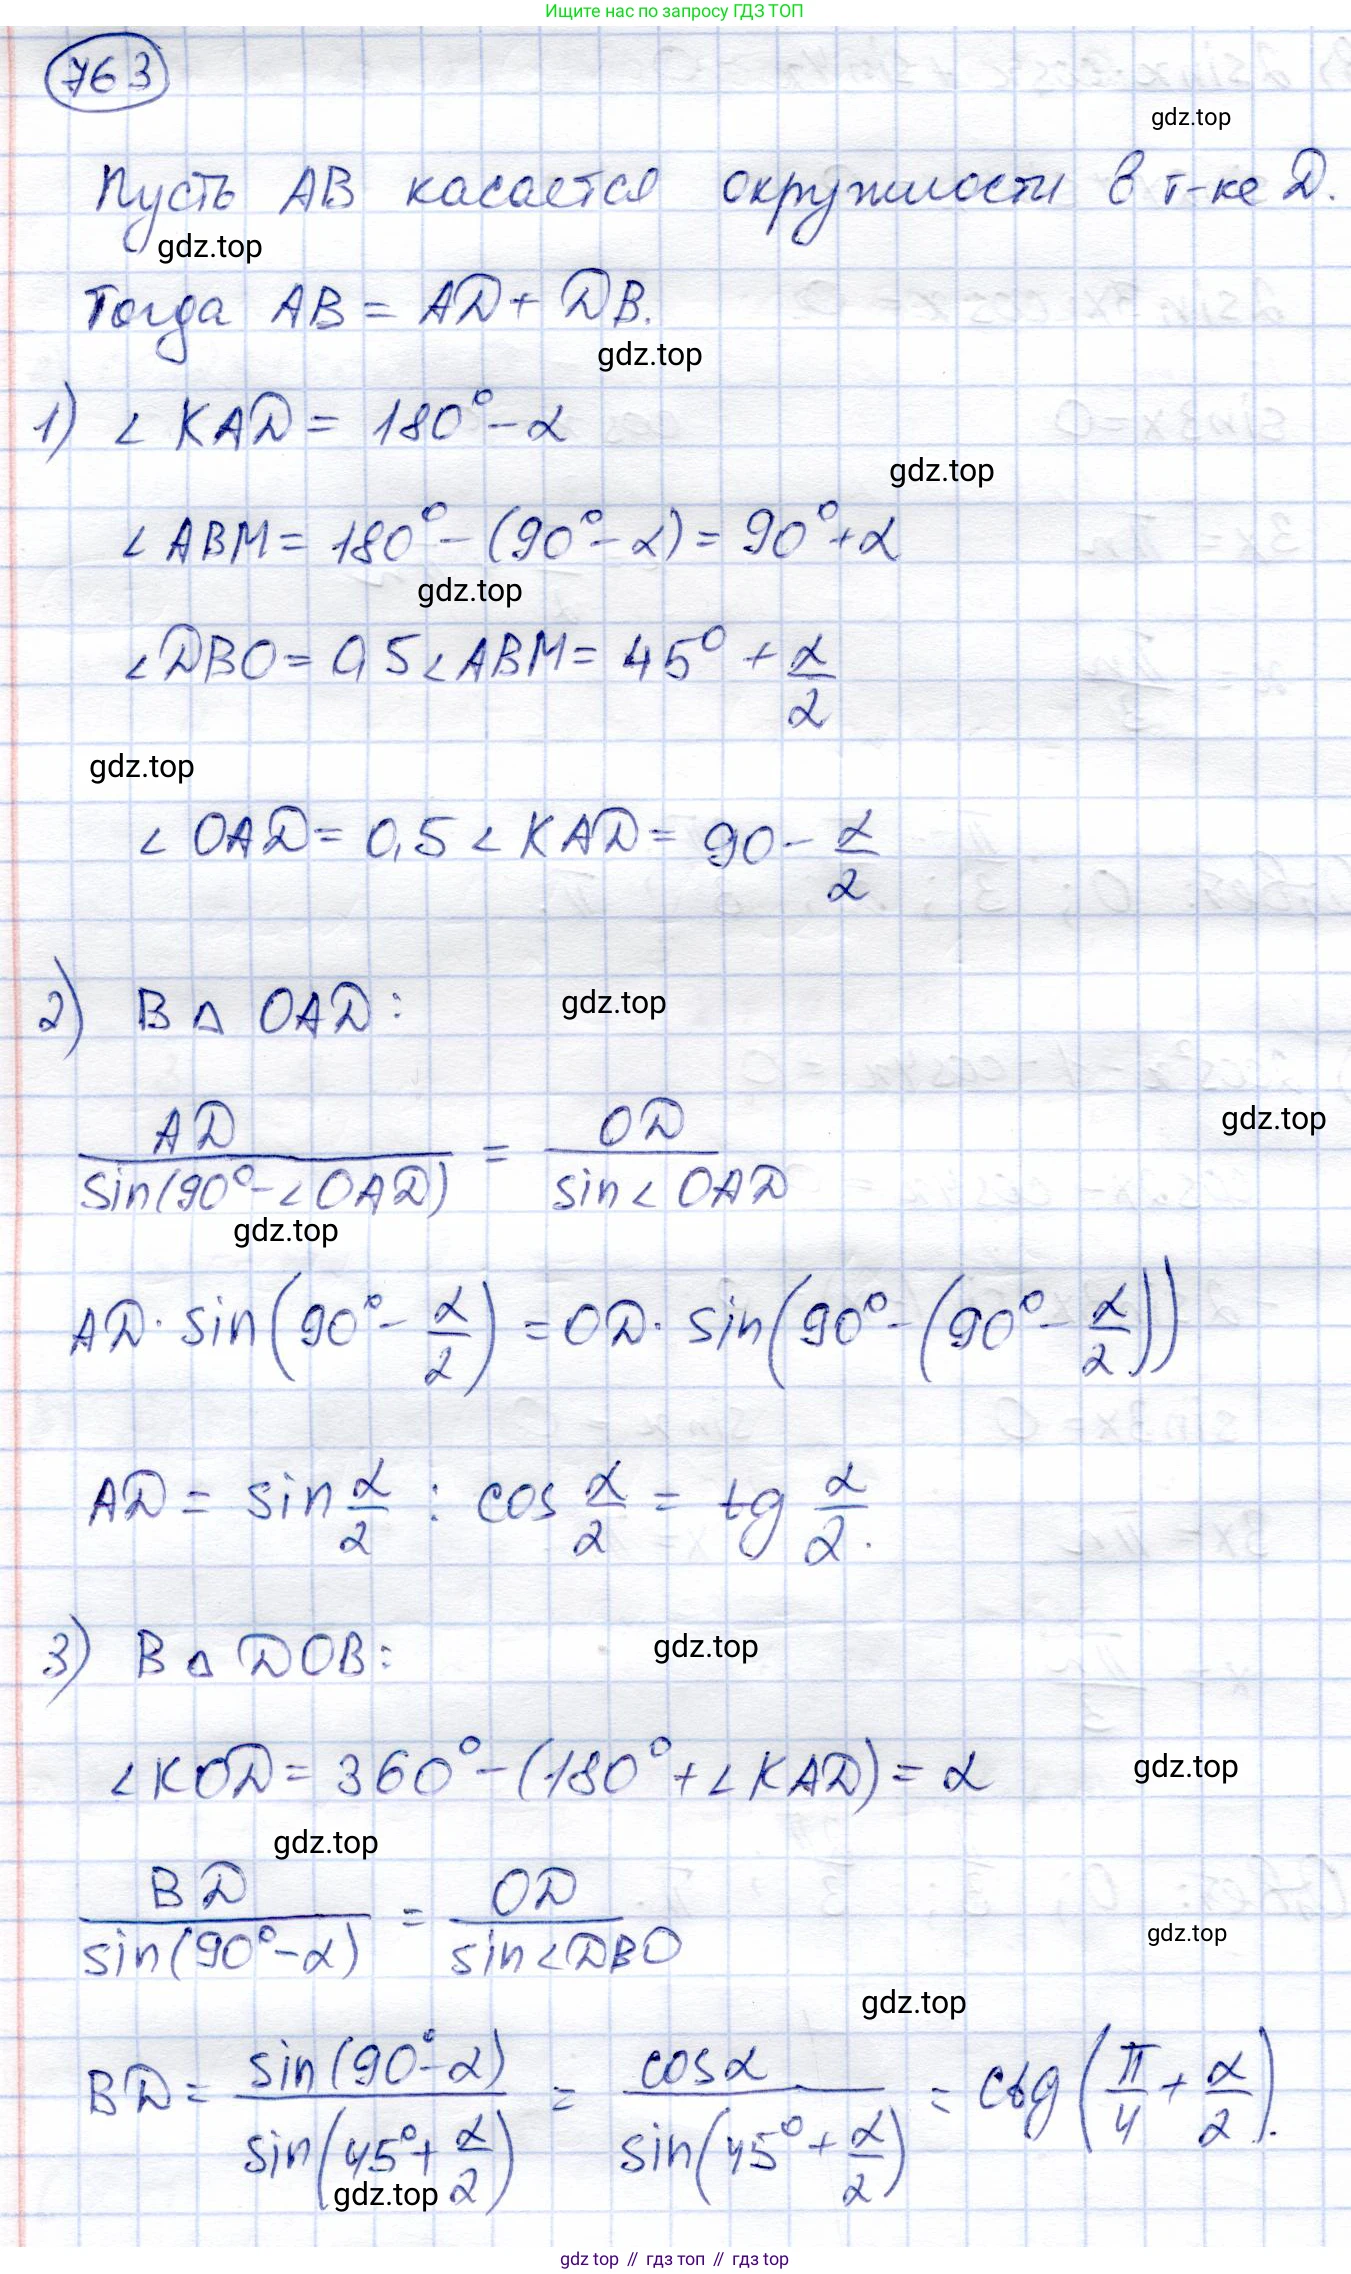 Ищите нас по запросу ГДЗ ТОП
763
gdz.top
Пусть AB касается окружности в т-ке D.
gdz.top
Тогда AB = AD + DB.
gdz.top
1) ∠ KAD = 180° - α
gdz.top
∠ ABM = 180° - (90° - α) = 90° + α
gdz.top
∠ DBO = 0,5 ∠ ABM = 45° + α/2
gdz.top
∠ OAD = 0,5 ∠ KAD = 90 - α/2
2) В △ OAD:
gdz.top
AD / sin(90° - ∠ OAD) = OD / sin ∠ OAD
gdz.top
gdz.top
AD · sin(90° - α/2) = OD · sin(90° - (90° - α/2))
AD = sin α/2 : cos α/2 = tg α/2.
3) В △ DOB:
gdz.top
∠ KOD = 360° - (180° + ∠ KAD) = α
gdz.top
gdz.top
BD / sin(90° - α) = OD / sin ∠ DBO
gdz.top
gdz.top
BD = sin(90° - α) / sin(45° + α/2) = cos α / sin(45° + α/2) = ctg(π/4 + α/2).
gdz.top
gdz top // гдз топ // гдз top